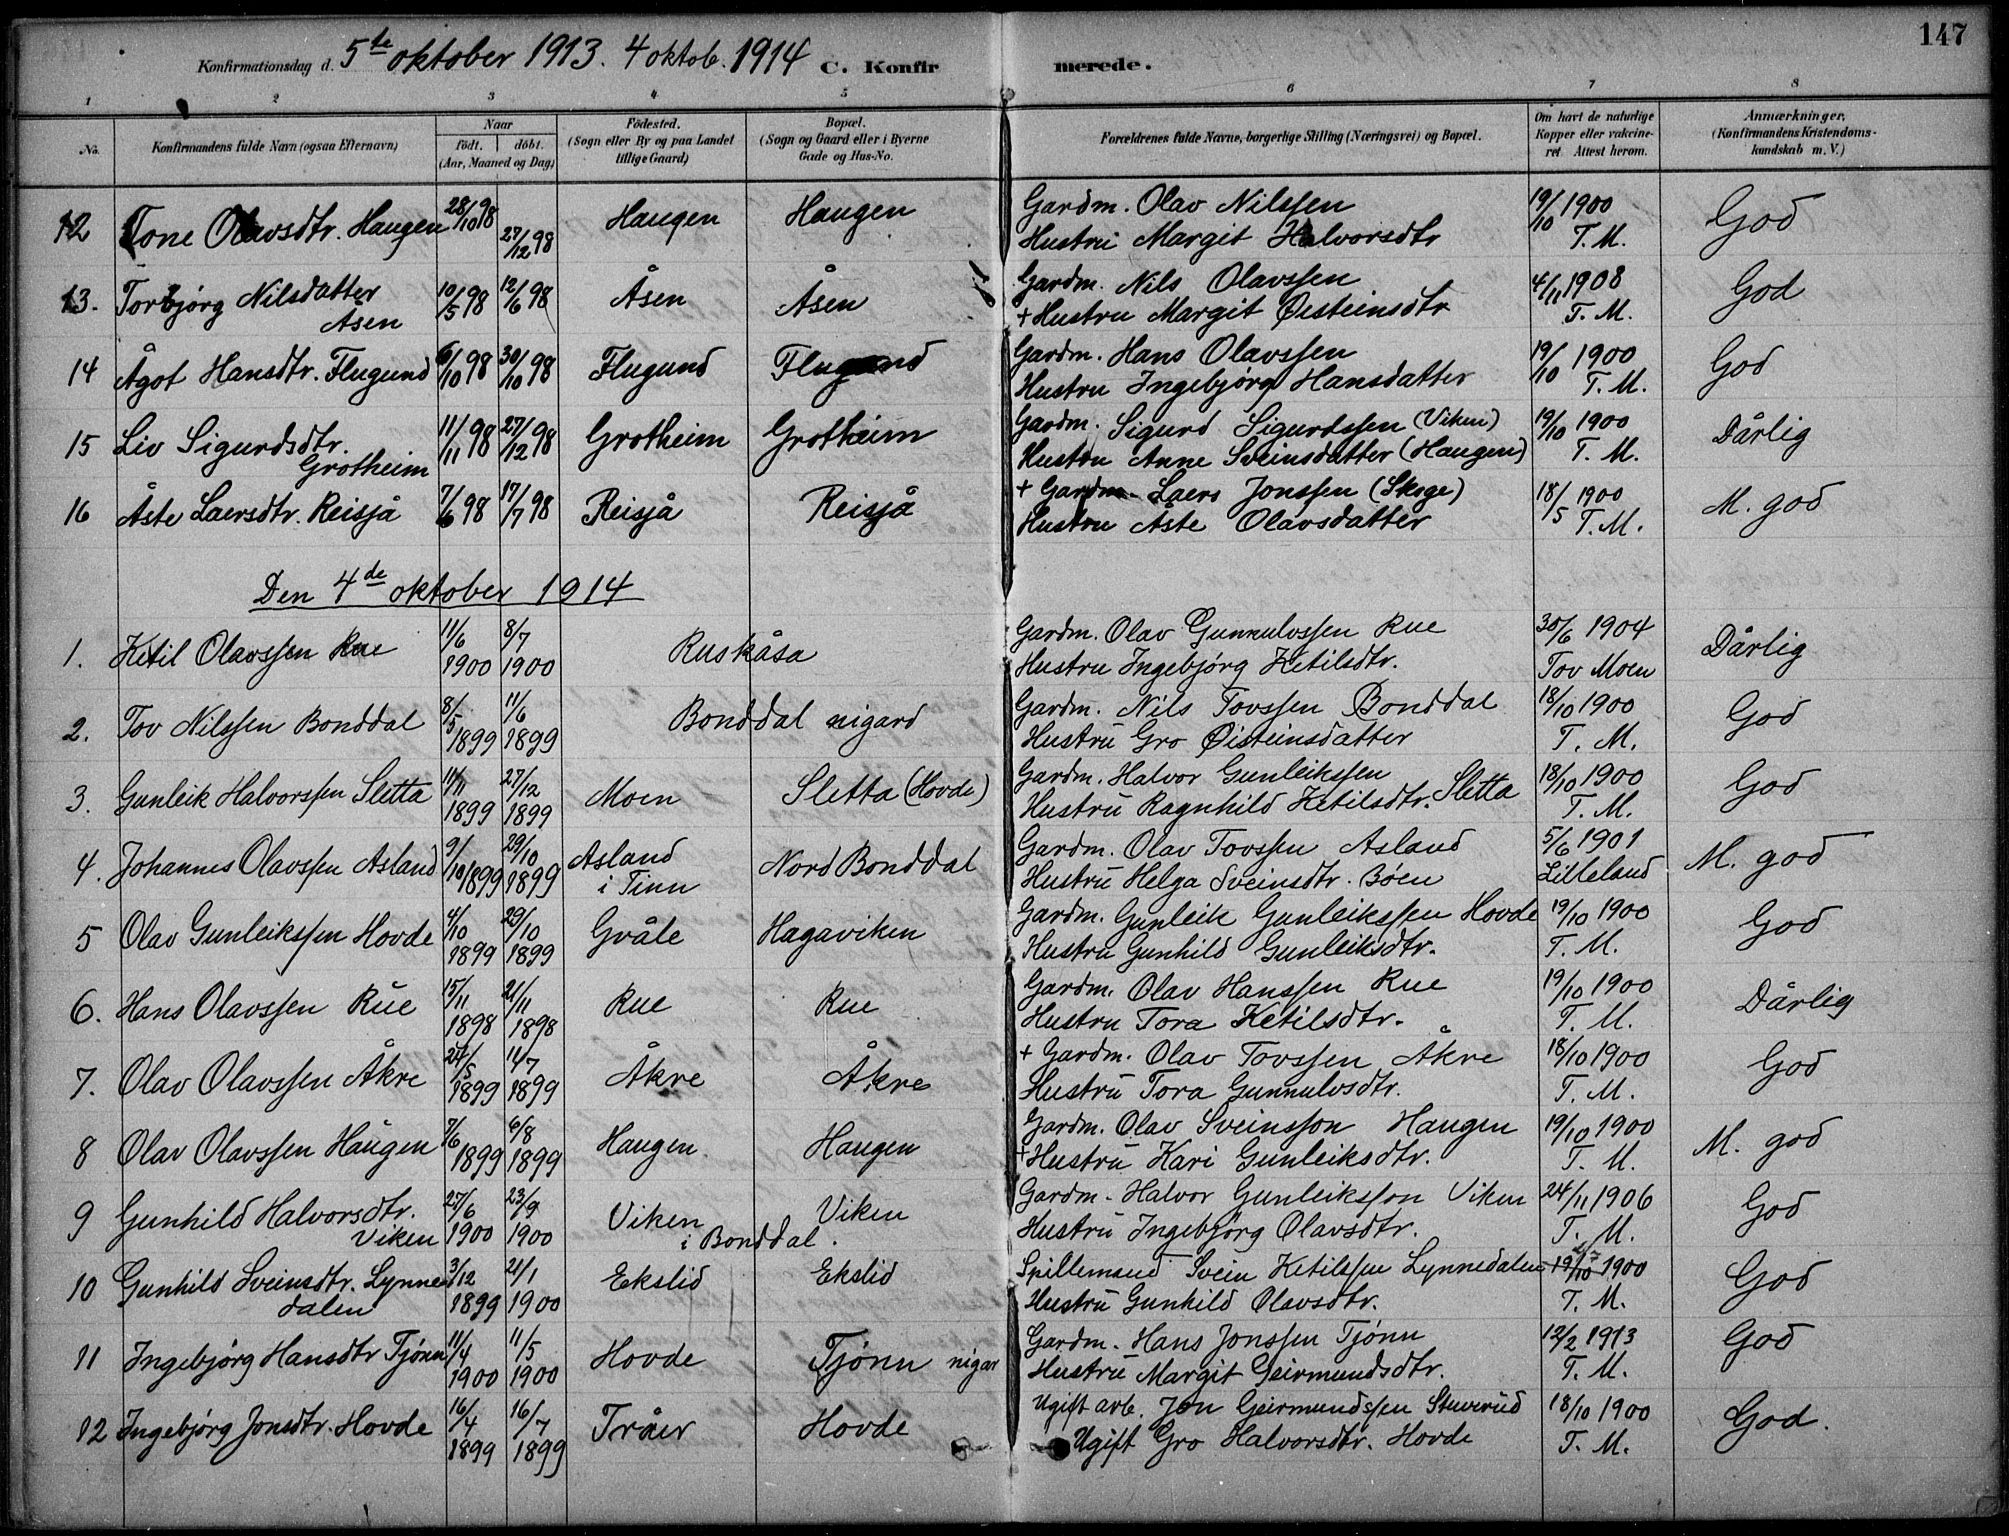 147
Konfirmationsdag d. 5te oktober 1913. 4 oktob. 1914 C. Konfirmerede.
1 2 3 4 5 6 7 8
No. Konfirmandens fulde Navn (ogsaa Efternavn) Naar født. døbt. (Aar, Maaned og Dag) Fødested. (Sogn eller By og paa Landet tillige Gaard) Bopæl. (Sogn og Gaard eller i Byerne Gade og Hus-No. Forældrenes fulde Navne, borgerlige Stilling (Næringsvei) og Bopæl. Om havt de naturlige Kopper eller vakcineret. Attest herom. Anmærkninger. (Konfirmandens Kristendomskundskab m. V.)
12 Tone Olavsdtr. Haugen 28/10 98 27/12 98 Haugen Haugen Gardm. Olav Nilssen 19/10 1900 God
Hustru Margit Halvorsdtr T. M.
13. Torbjørg Nilsdatter 10/5 98 12/6 98 Åsen Åsen Gardm. Nils Olavssen 4/11 1908 God
Åsen + Hustru Margit Øisteinsdtr T. M.
14 Ågot Hansdtr. Flugund 6/10 98 30/10 98 Flugund Flugund Gardm. Hans Olavssen 19/10 1900 God
Hustru Ingebjørg Hansdatter T. M.
15 Liv Sigurdsdtr. 11/11 98 27/12 98 Grotheim Grotheim Gardm. Sigurd Sigurdssen (Viken) 19/10 1900 Dårlig
Grotheim Hustru Anne Sveinsdatter (Haugen) T. M.
16 Åste Laersdtr. Reisjå 7/6 98 17/7 98 Reisjå Reisjå + Gardm. Laers Jonssen (Skoge) 18/5 1900 M. god
Hustru Åste Olavsdatter T. M.
Den 4de oktober 1914
1. Ketil Olavssen Rue 11/6 8/7 Ruskåsa Gardm. Olav Gunnulvssen Rue 30/6 1904 Dårlig
1900 1900 Hustru Ingebjørg Ketilsdtr. Tov Moen
2. Tov Nilssen Bonddal 8/5 11/6 Bonddal nigard Gardm. Nils Tovssen Bonddal 18/10 1900 God
1899 1899 Hustru Gro Øisteinsdatter T. M.
3. Gunleik Halvorssen Sletta 11/11 27/12 Moen Sletta (Hovde) Gardm. Halvor Gunleikssen 18/10 1900 God
1899 1899 Hustru Ragnhild Ketilsdtr. Sletta T. M.
4. Johannes Olavssen Asland 9/10 29/10 Asland Nord Bonddal Gardm. Olav Tovssen Asland 5/6 1901 M. god
1899 1899 i Tinn Hustru Helga Sveinsdtr. Bøen Lilleland
5 Olav Gunleikssen Hovde 4/10 29/10 Gvåle Hagaviken Gardm. Gunleik Gunleikssen Hovde 19/10 1900 God
1899 1899 Hustru Gunhild Gunleiksdtr. T. M.
6. Hans Olavssen Rue 15/11 21/11 Rue Rue Gardm. Olav Hanssen Rue 19/10 1900 Dårlig
1898 1898 Hustru Tora Ketilsdtr. T. M.
7. Olav Olavssen Åkre 24/5 14/7 Åkre Åkre + Gardm. Olav Tovssen Åkre 18/10 1900 God
1899 1899 Hustru Tora Gunnulvsdtr. T. M.
8 Olav Olavssen Haugen 7/6 6/8 Haugen Haugen Gardm. Olav Sveinsson Haugen 19/10 1900 M. god
1899 1899 + Hustru Kari Gunleiksdtr. T. M.
9 Gunhild Halvorsdtr. 27/6 23/9 Viken Viken Gardm. Halvor Gunleiksson Viken 24/11 1906 God
Viken 1900 1900 i Bonddal. Hustru Ingebjørg Olavsdtr. T. M.
10 Gunhild Sveinsdtr. Lynne 3/12 21/1 Ekslid Ekslid Spillemand Svein Ketilssen Lynnedalen 19/10 1900 God
dalen 1899 1900 Hustru Gunhild Olavsdtr. T. M.
11 Ingebjørg Hansdtr Tjønn 11/4 11/5 Hovde Tjønn nigar Gardm. Hans Jonssen Tjønn 12/2 1913 God
1900 1900 Hustru Margit Geirmundsdtr. T. M.
12 Ingebjørg Jonsdtr. Hovde 16/4 16/7 Tråer Hovde Ugift arb. Jon Geirmundssen Stuverud 18/10 1900 God.
1899 1899 Ugift Gro Halvorsdtr. Hovde T. M.